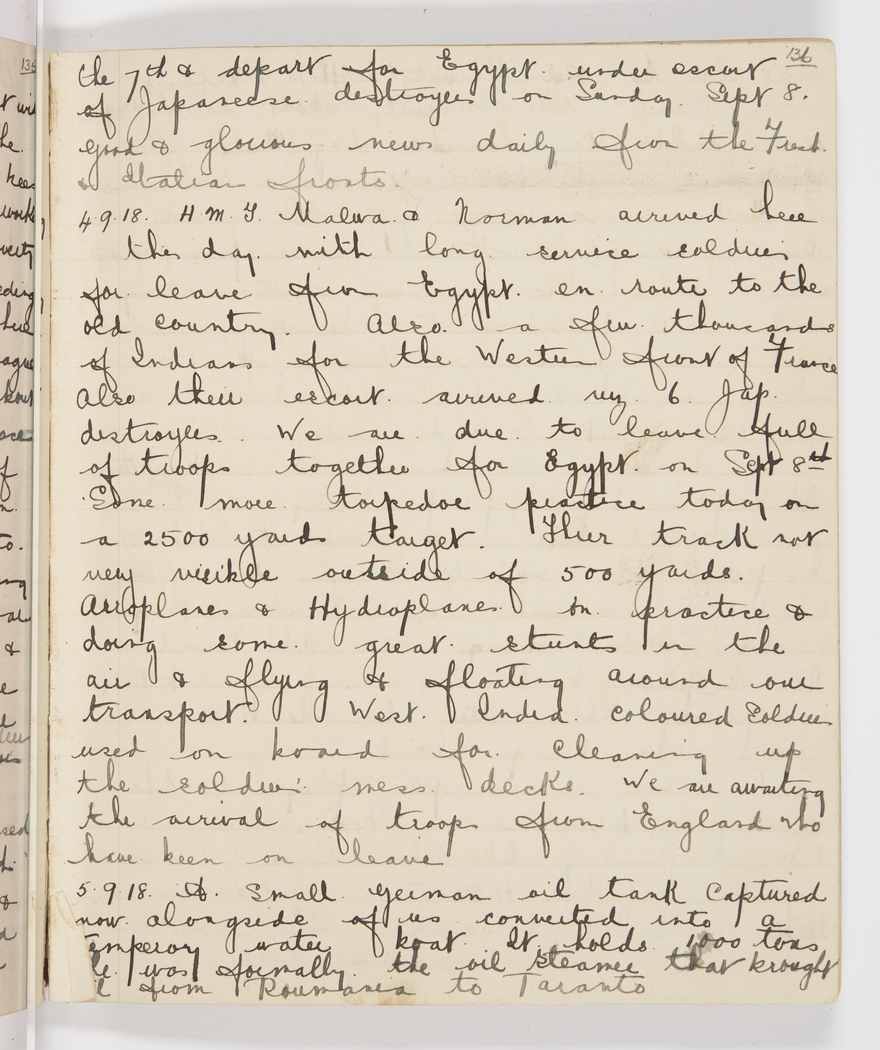 136
the 7th & depart for Egypt. under escort
of Japaneese destroyers on Sunday. Sept 8.
good & glorious news daily from the Fresh.
& Italian fronts.
4.9.18. H.M.T. Malwa. & Norman arrived here
this day. with long service soldiers
for leave from Egypt. en route to the
old country. Also. a few thousands
of Indians for the Western front of France
Also their escort. arrived viz. 6. Jap.
destroyers. We are due to leave full
of troops together for Egypt. on Sept 8th
Some more torpedoe practice today on
a 2500 yards target. Their track not
very visible outside of 500 yards.
Aeroplanes & Hydroplanes on practice &
doing some great stunts in the
air & flying & floating around our
transport. West. India coloured soldiers
used on board for cleaning up
the soldiers mess decks. We are awaiting
the arrival of troops from England who
have been on leave
5.9.18. A. Small german oil tank Captured
now alongside of us converted into a
temperory water boat. It holds 1000 tons
was formally. the oil steamer that brought
from Roumania to Taranto
135